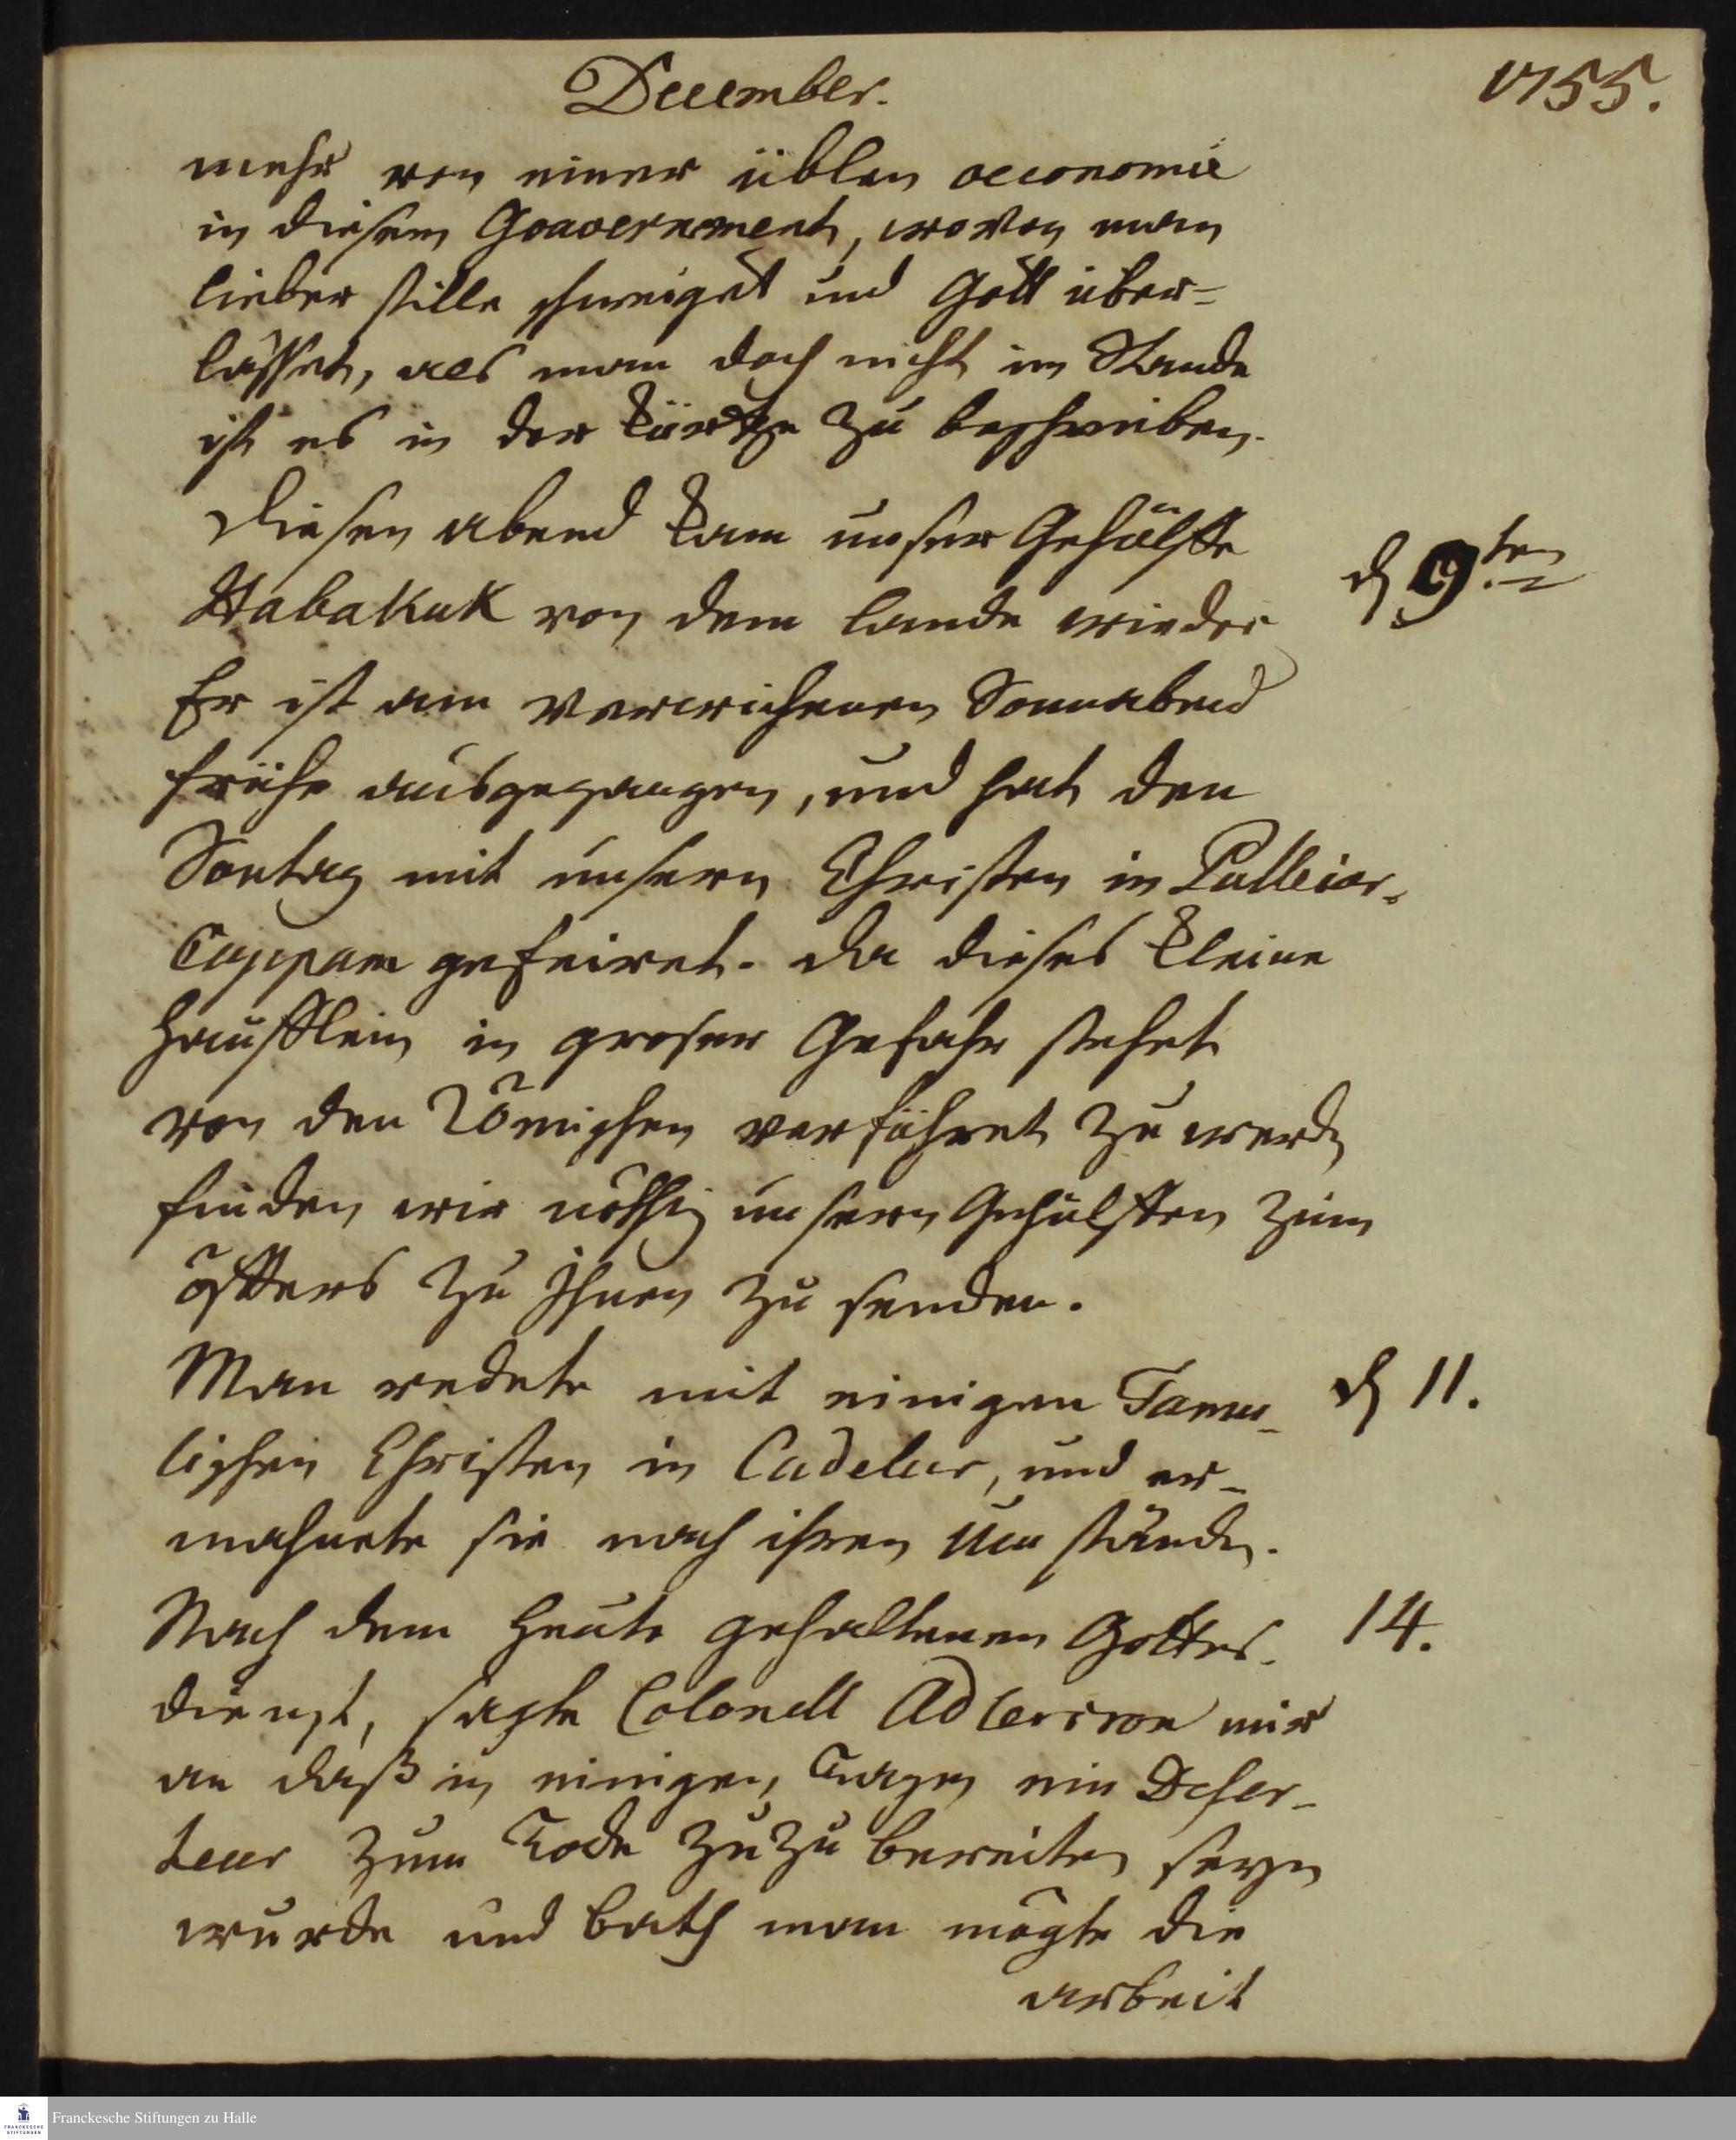 December.
1755.
mehr von einer üblen oeconomie
in diesem Gouvernement, wovon man
lieber stille schweiget und Gott über-
lässet, als man doch nicht im Stande
ist es in der kürtze zu beschreiben.
Diesen abend kam unser Gehülffe
d 9ten
Habakuk von dem lande wieder
Er ist am verwichenen Sonnabend
frühe ausgegangen, und hat den
Sontag mit unsern Christen in Pulleiar-
Cuppam gefeiret. da dieses kleine
Häufflein in groser Gefahr stehet
von den Römischen verführet zu werdn
finden wir nöthig unsern Gehülffen zum
öffters zu Ihnen zu senden.
Man redete mit einigen Tamu-
d 11.
lischen Christen in Cudelur, und er-
mahnete sie nach ihren Umständn.
Nach dem heute gehaltenen Gottes-
14.
dienst, sagte Colonell Adlercron mir
an daß in einigen Tagen ein Deser-
teur zum Tode zuzu bereiten seyn
wurde und bath man mögte die
arbeit
Franckesche Stiftungen zu Halle